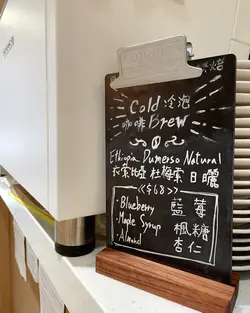 Cold 冷泡
咖啡 Brew
Ethiopia Dumerso Natural
衣索比亞 杜梅索 日曬
<<$68>>
·Blueberry 藍莓
·Maple Syrup 楓糖
·Almond 杏仁